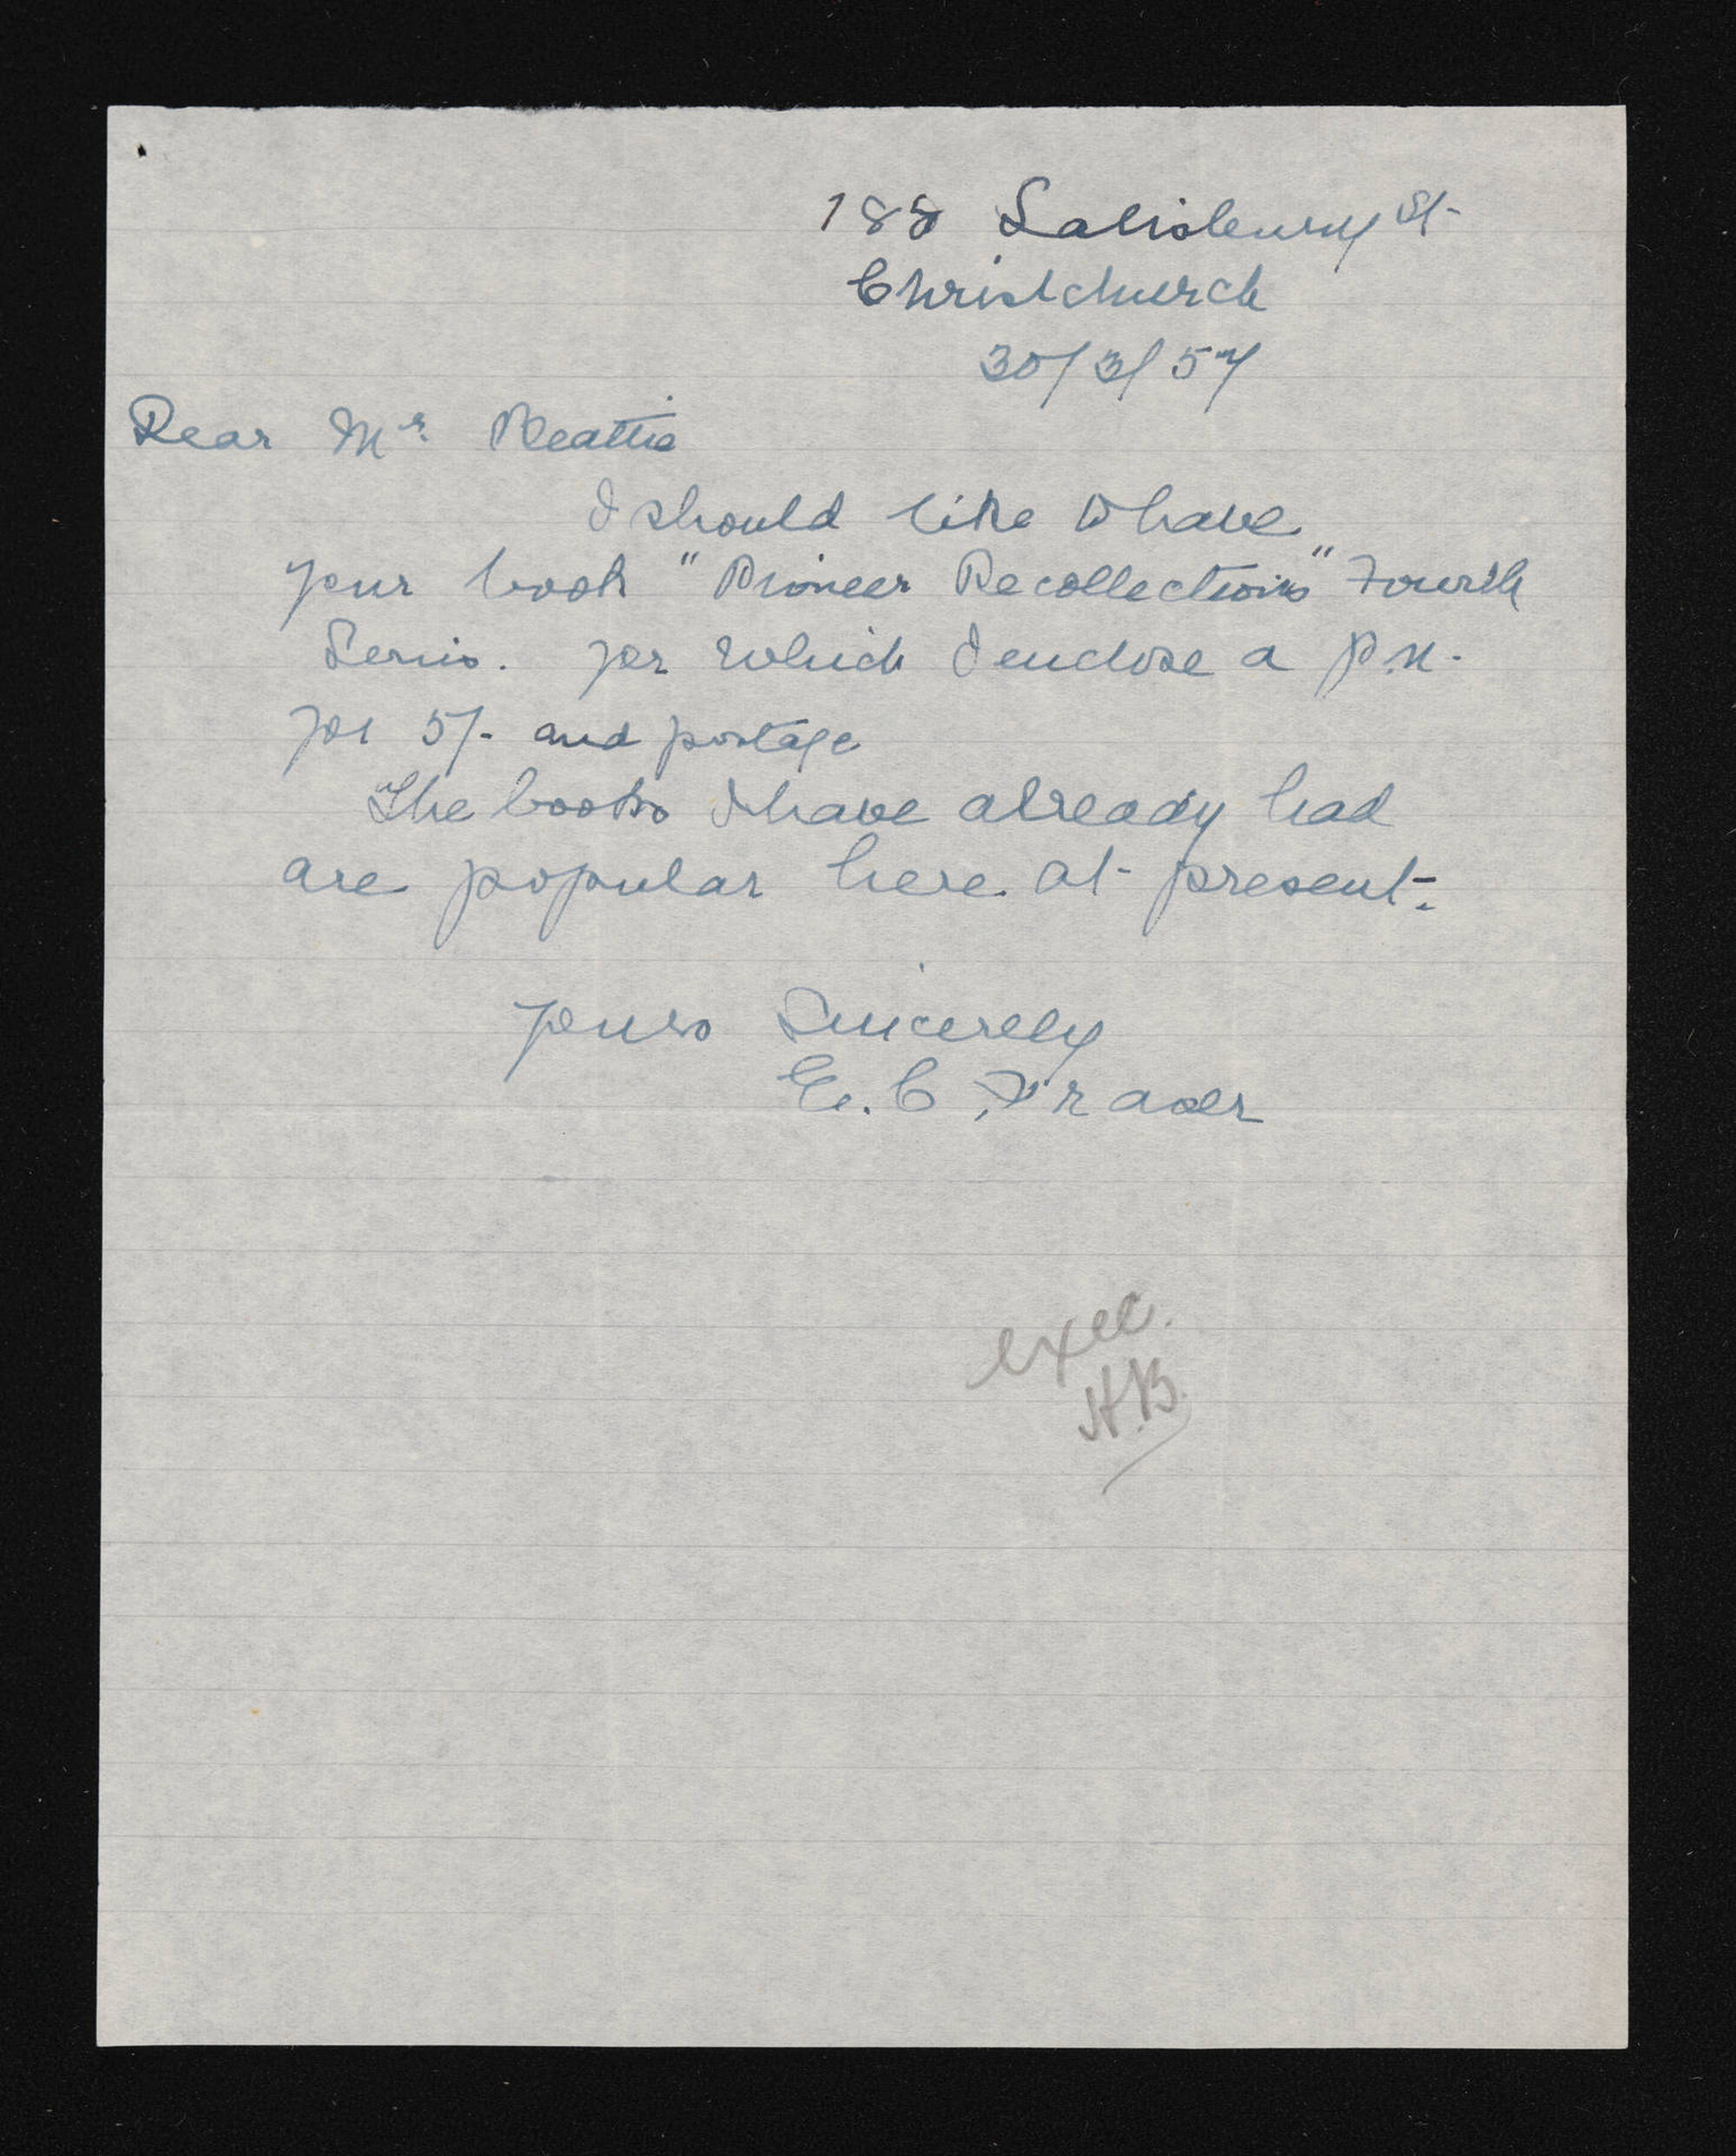 188 Salisbury St.
Christchurch
30/3/57
Dear Mr. Beattie
I should like to have
your book "Pioneer Recollections" Fourth
Series. for which I enclose a P.N.
for 5/- and postage
The books I have already had
are popular here at present.
Yours Sincerely
E. C Fraser
exec.
H.B.